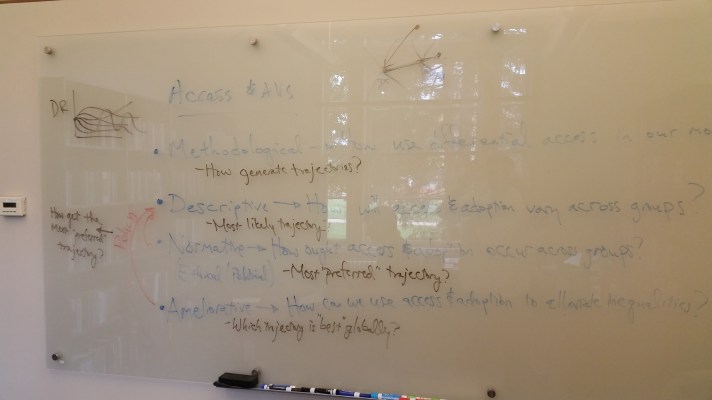 Access & AVs
DR
• Methodological → How use differential access in our mo
- How generate trajectories?
• Descriptive → How will access & adoption vary across groups?
- Most likely trajectory
How get the most "preferred" trajectory?
Policy
• Normative → How ought access & adoption occur across groups?
- Most "preferred" trajectory?
• Ameliorative → How can we use access & adoption to inequalities?
- Which trajectory is "best" globally?